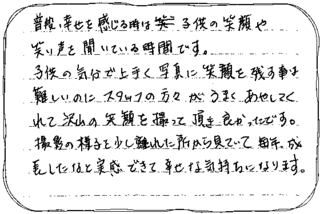 普段、幸せを感じる時は 子供の笑顔や
笑い声を聞いている時間です。
子供の気分が上手く写真に笑顔を残す事は
難しいのにスタッフの方々がうまくあやしてく
れて沢山の笑顔を撮って頂き良かったです。
撮影の様子を少し離れた所から見ていて毎年、成
長したなと実感できて幸せな気持ちになります。